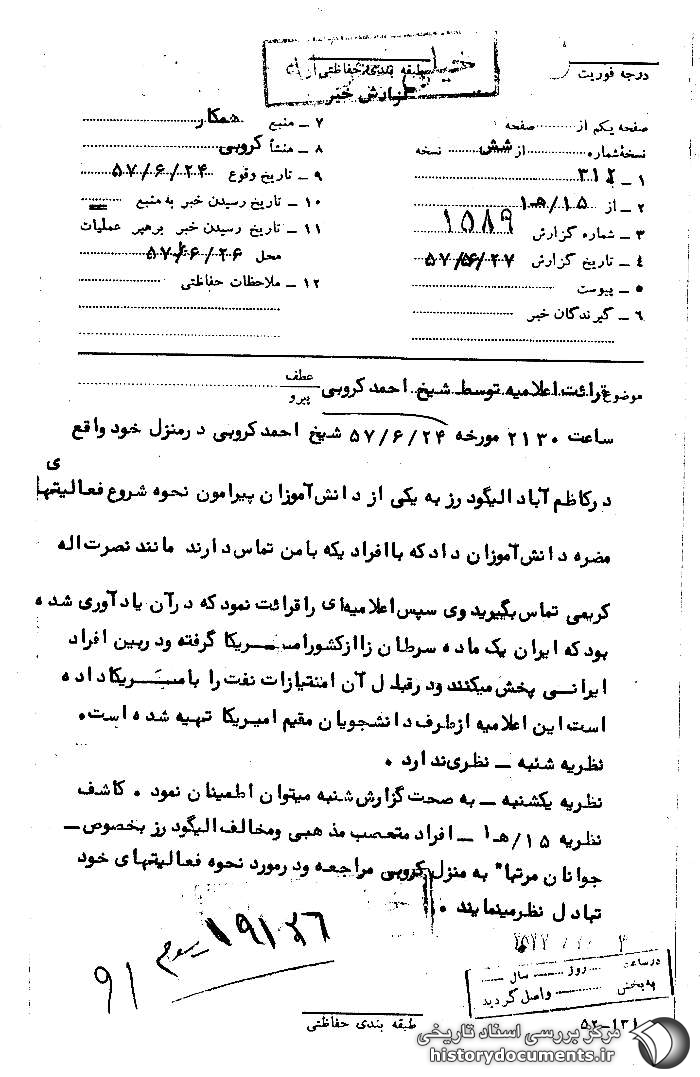 طبقه بندی حفاظتی
گزارش خبر
درجه فوریت
صفحه یکم از صفحه
نسخهٔ شماره از شش نسخه
۱ ــ ۳۱۲
۲ ــ از ۱۵/هـ۱
۳ ــ شماره گزارش ۱۵۸۹
۴ ــ تاریخ گزارش ۵۷/۶/۲۷
۵ ــ پیوست
۶ ــ گیرندگان خبر
۷ ــ منبع همکار
۸ ــ منشأ کروبی
۹ ــ تاریخ وقوع ۵۷/۶/۲۴
۱۰ ــ تاریخ رسیدن خبر به منبع
۱۱ ــ تاریخ رسیدن خبر برهبر عملیات
محل ۵۷/۶/۲۶
۱۲ ــ ملاحظات حفاظتی
موضوع قرائت اعلامیه توسط شیخ احمد کروبی
عطف
پیرو
ساعت ۲۱۳۰ مورخه ۵۷/۶/۲۴ شیخ احمد کروبی درمنزل خود واقع
درکاظم آباد الیگودرز به یکی از دانش‌آموزان پیرامون نحوه شروع فعالیتهای
مضره دانش‌آموزان داد که با افراد یکه بامن تماس دارند مانند نصرت اله
کریمی تماس بگیرید وی سپس اعلامیه‌ای را قرائت نمود که درآن یادآوری شده
بود که ایران یک ماده سرطان زا از کشور امریکا گرفته ودربین افراد
ایرانی پخش میکنند ودرقبال آن امتیازات نفت را بامریکا داده
است این اعلامیه ازطرف دانشجویان مقیم امیریکا تهیه شده است.
نظریه شنبه ــ نظری ندارد .
نظریه یکشنبه ــ به صحت گزارش شنبه میتوان اطمینان نمود . کاشف
نظریه ۱۵/هـ۱ ــ افراد متعصب مذهبی ومخالف الیگودرز بخصوص ــ
جوانان مرتبا" به منزل کروبی مراجعه ودرمورد نحوه فعالیتهای خود
تبادل نظرمینمایند .
۹۱
درساعت روز سال
به‌بخش واصل گردید
طبقه بندی حفاظتی
۵۲-۱۳۱
مرکز بررسی اسناد تاریخی
historydocuments.ir